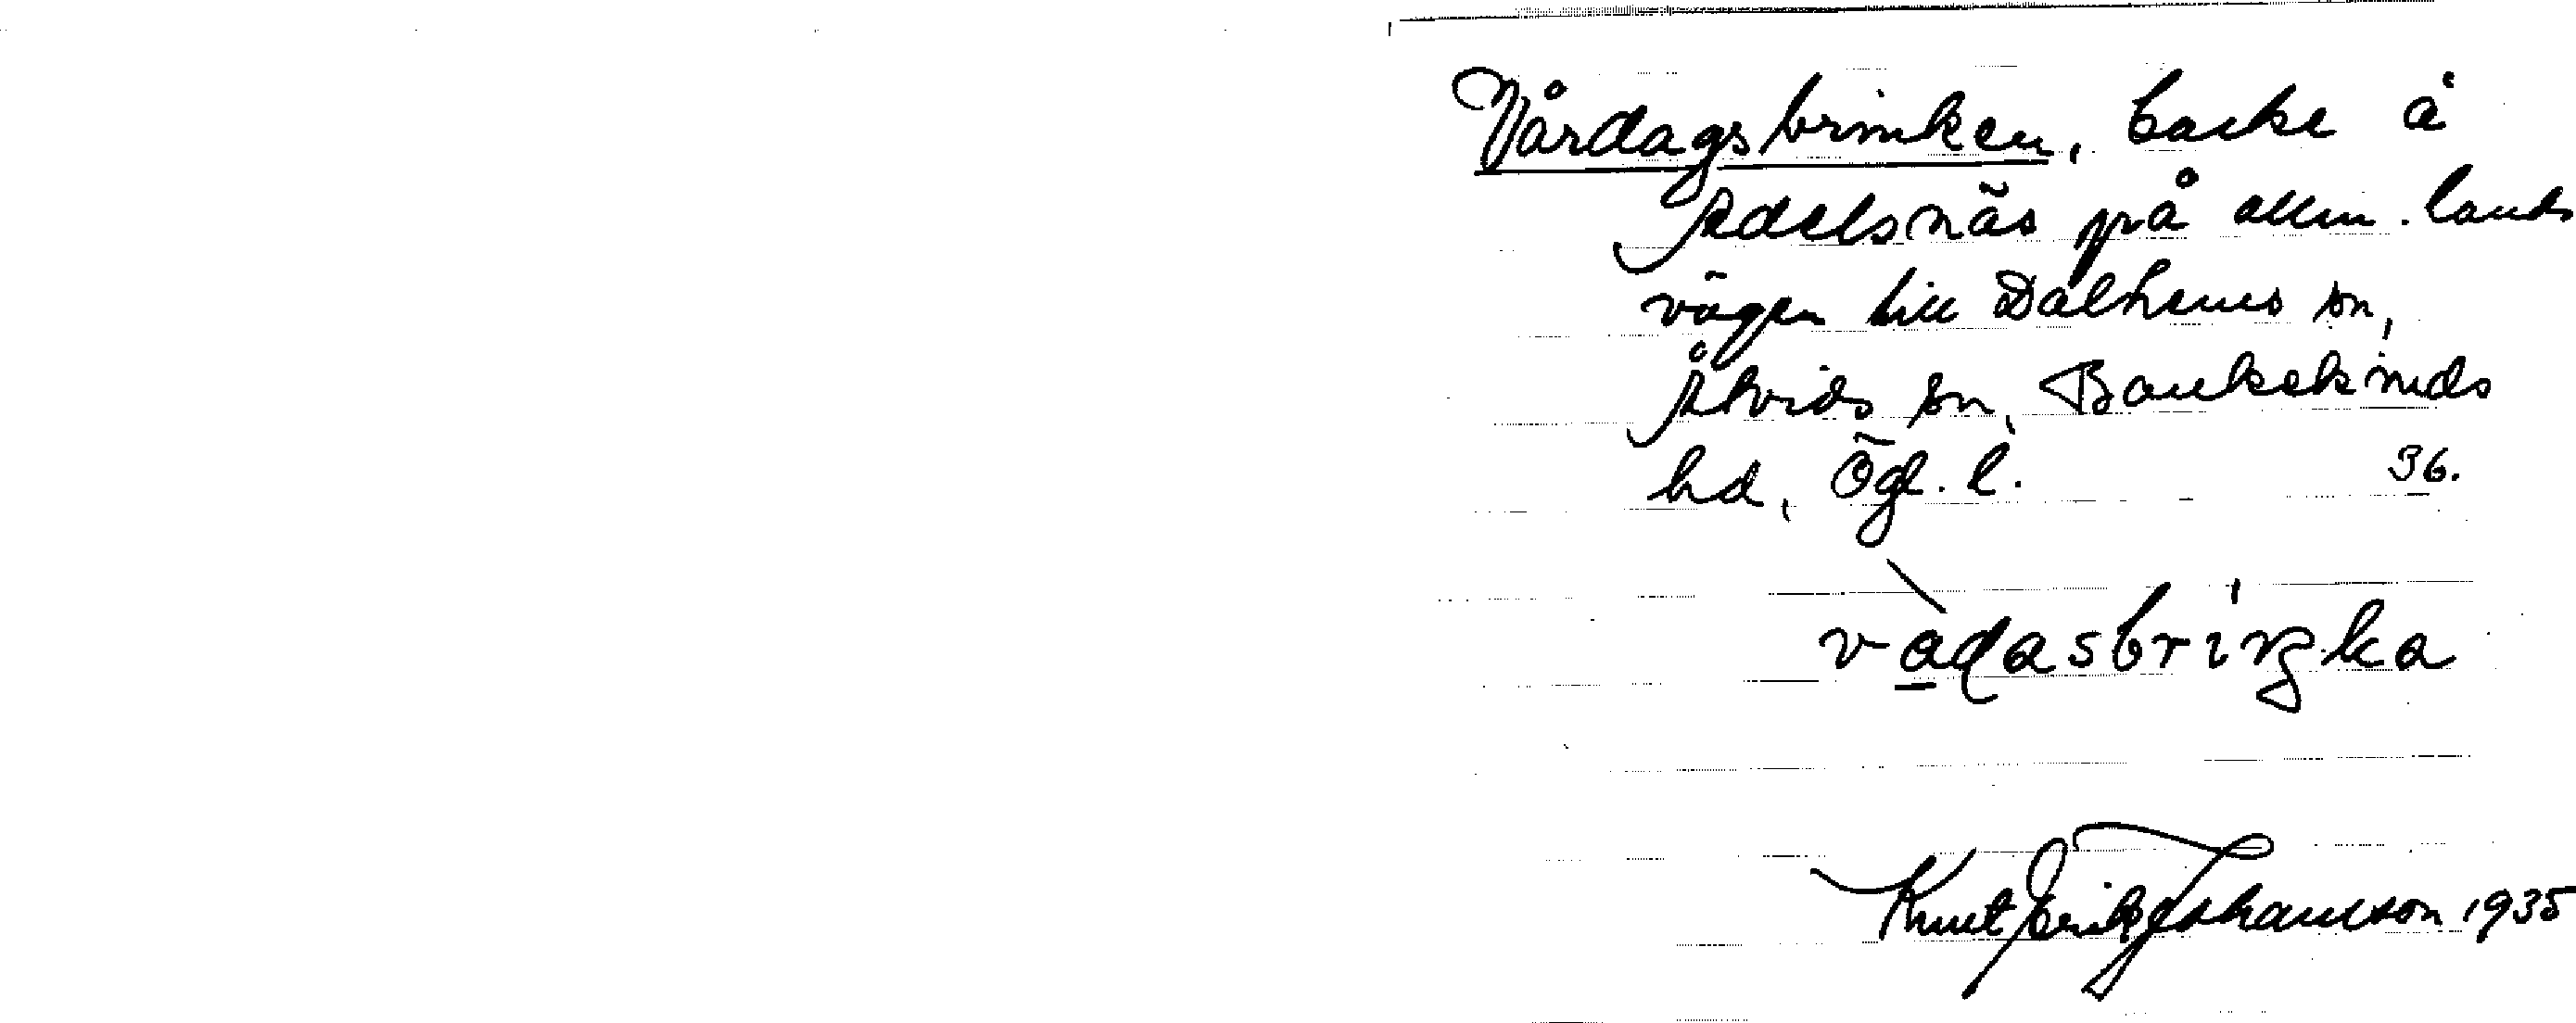 Vårdagsbrinken, backe å
Adelsnäs på allm. lands
vägen till Dalhems sn,
Åtvids sn, Bankekinds
hd, Ögl. l. 36.
vadasbriŋka
Knut Erik Johansson 1935